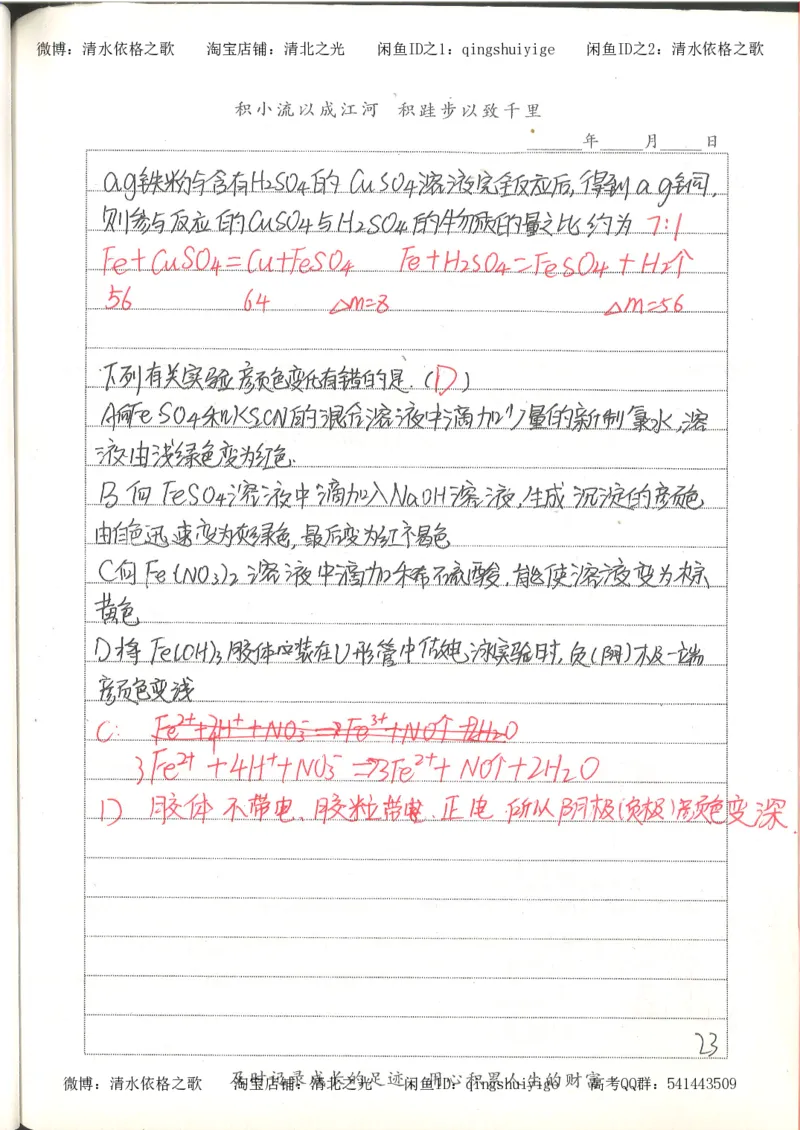 微博：清水依格之歌 淘宝店铺：清北之光 闲鱼ID之1：qingshuiyige 闲鱼ID之2：清水依格之歌
积小流以成江河 积跬步以致千里
年 月 日
ag铁粉与含有H₂SO₄的CuSO₄溶液完全反应后,得到ag铜,
则参与反应的CuSO₄与H₂SO₄的物质的量之比约为 7:1
Fe+CuSO₄=Cu+FeSO₄ Fe+H₂SO₄=FeSO₄+H₂↑
56 64 △m=8 △m=56
下列有关实验颜色变化有错的是.(D)
A向FeSO₄和KSCN的混合溶液中滴加少量的新制氯水,溶
液由浅绿色变为红色.
B 向FeSO₄溶液中滴加入NaOH溶液,生成沉淀的颜色
由白色迅速变为灰绿色,最后变为红褐色
C向Fe(NO₃)₂溶液中滴加稀硫酸,能使溶液变为棕
黄色
D将Fe(OH)₃胶体应装在U形管中做电泳实验时,负(阴)极一端
颜色变浅
C: Fe²⁺+2H⁺+NO₃⁻=Fe³⁺+NO↑+H₂O
3Fe²⁺+4H⁺+NO₃⁻=3Fe²⁺+NO↑+2H₂O
D 胶体不带电、胶粒带电.正电.所以阴极(负极)颜色变深.
23
及时记录成长的足迹 用心积累人生的财富
微博：清水依格之歌 淘宝店铺：清北之光 闲鱼ID：qingshuiyige 高考QQ群：541443509